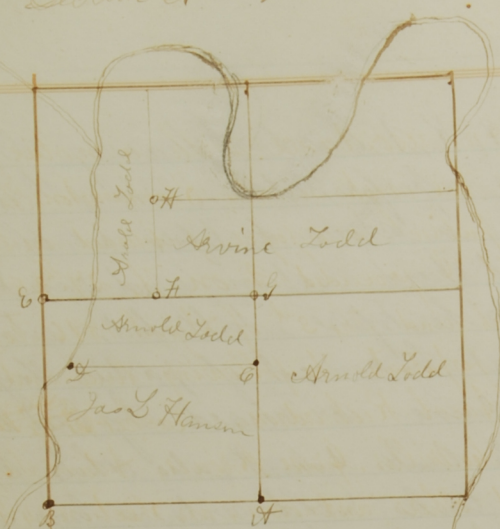 Arnold Todd
H
Arvine Todd
E
F
G
Arnold Todd
D
C
Arnold Todd
Jas L Hanson
B
A